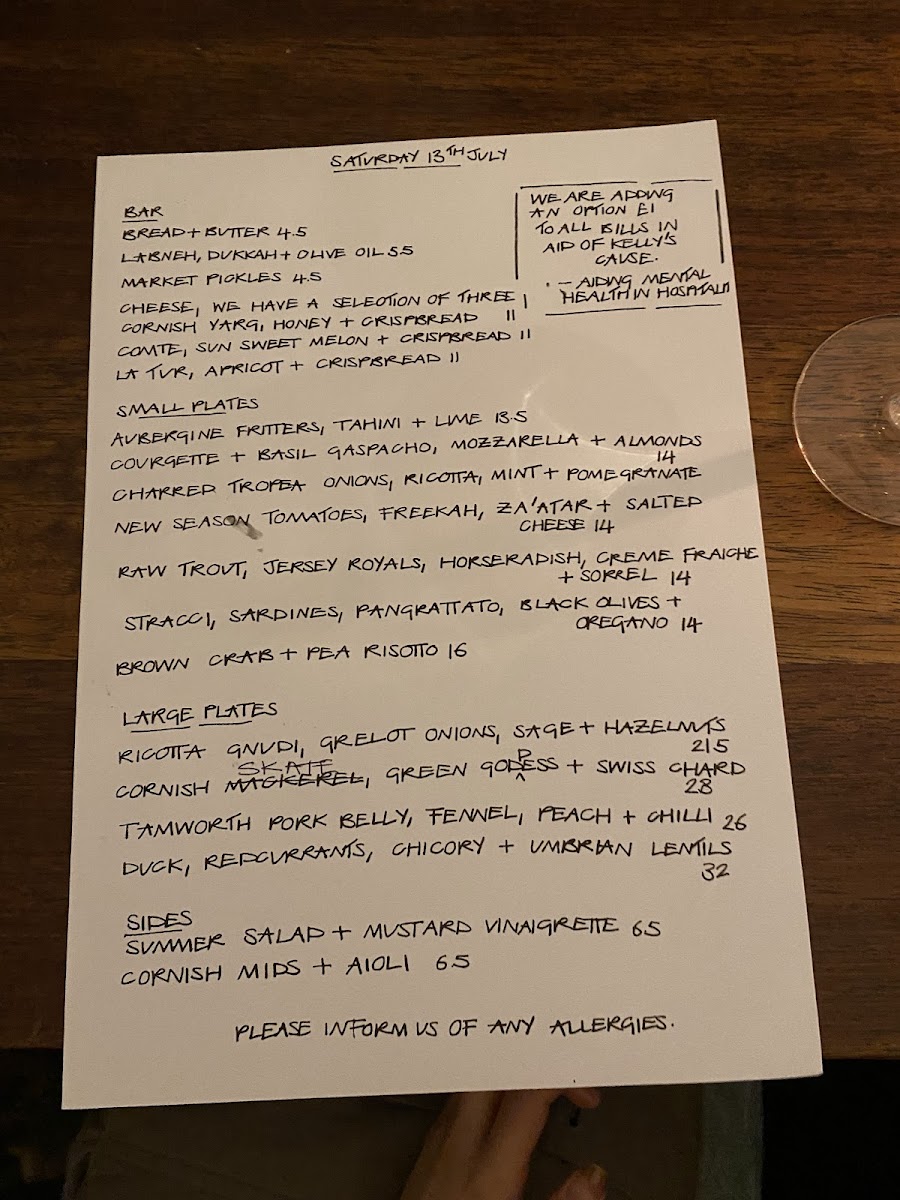 SATURDAY 13TH JULY
WE ARE ADDING
AN OPTION £1
TO ALL BILLS IN
AID OF KELLY'S
CAUSE.
- AIDING MENTAL
HEALTH IN HOSPITALITY
BAR
BREAD + BUTTER 4.5
LABNEH, DUKKAH + OLIVE OIL 5.5
MARKET PICKLES 4.5
CHEESE, WE HAVE A SELECTION OF THREE
CORNISH YARG, HONEY + CRISPBREAD 11
COMTE, SUN SWEET MELON + CRISPBREAD 11
LA TUR, APRICOT + CRISPBREAD 11
SMALL PLATES
AUBERGINE FRITTERS, TAHINI + LIME 13.5
COURGETTE + BASIL GASPACHO, MOZZARELLA + ALMONDS
14
CHARRED TROPEA ONIONS, RICOTTA, MINT + POMEGRANATE
NEW SEASON TOMATOES, FREEKAH, ZA'ATAR + SALTED
CHEESE 14
RAW TROUT, JERSEY ROYALS, HORSERADISH, CREME FRAICHE
+ SORREL 14
STRACCI, SARDINES, PANGRATTATO, BLACK OLIVES +
OREGANO 14
BROWN CRAB + PEA RISOTTO 16
LARGE PLATES
RICOTTA GNUDI, GRELOT ONIONS, SAGE + HAZELNUTS
21.5
SKATE
CORNISH MACKEREL, GREEN GODDESS + SWISS CHARD
28
TAMWORTH PORK BELLY, FENNEL, PEACH + CHILLI 26
DUCK, REDCURRANTS, CHICORY + UMBRIAN LENTILS
32
SIDES
SUMMER SALAD + MUSTARD VINAIGRETTE 6.5
CORNISH MIDS + AIOLI 6.5
PLEASE INFORM US OF ANY ALLERGIES.